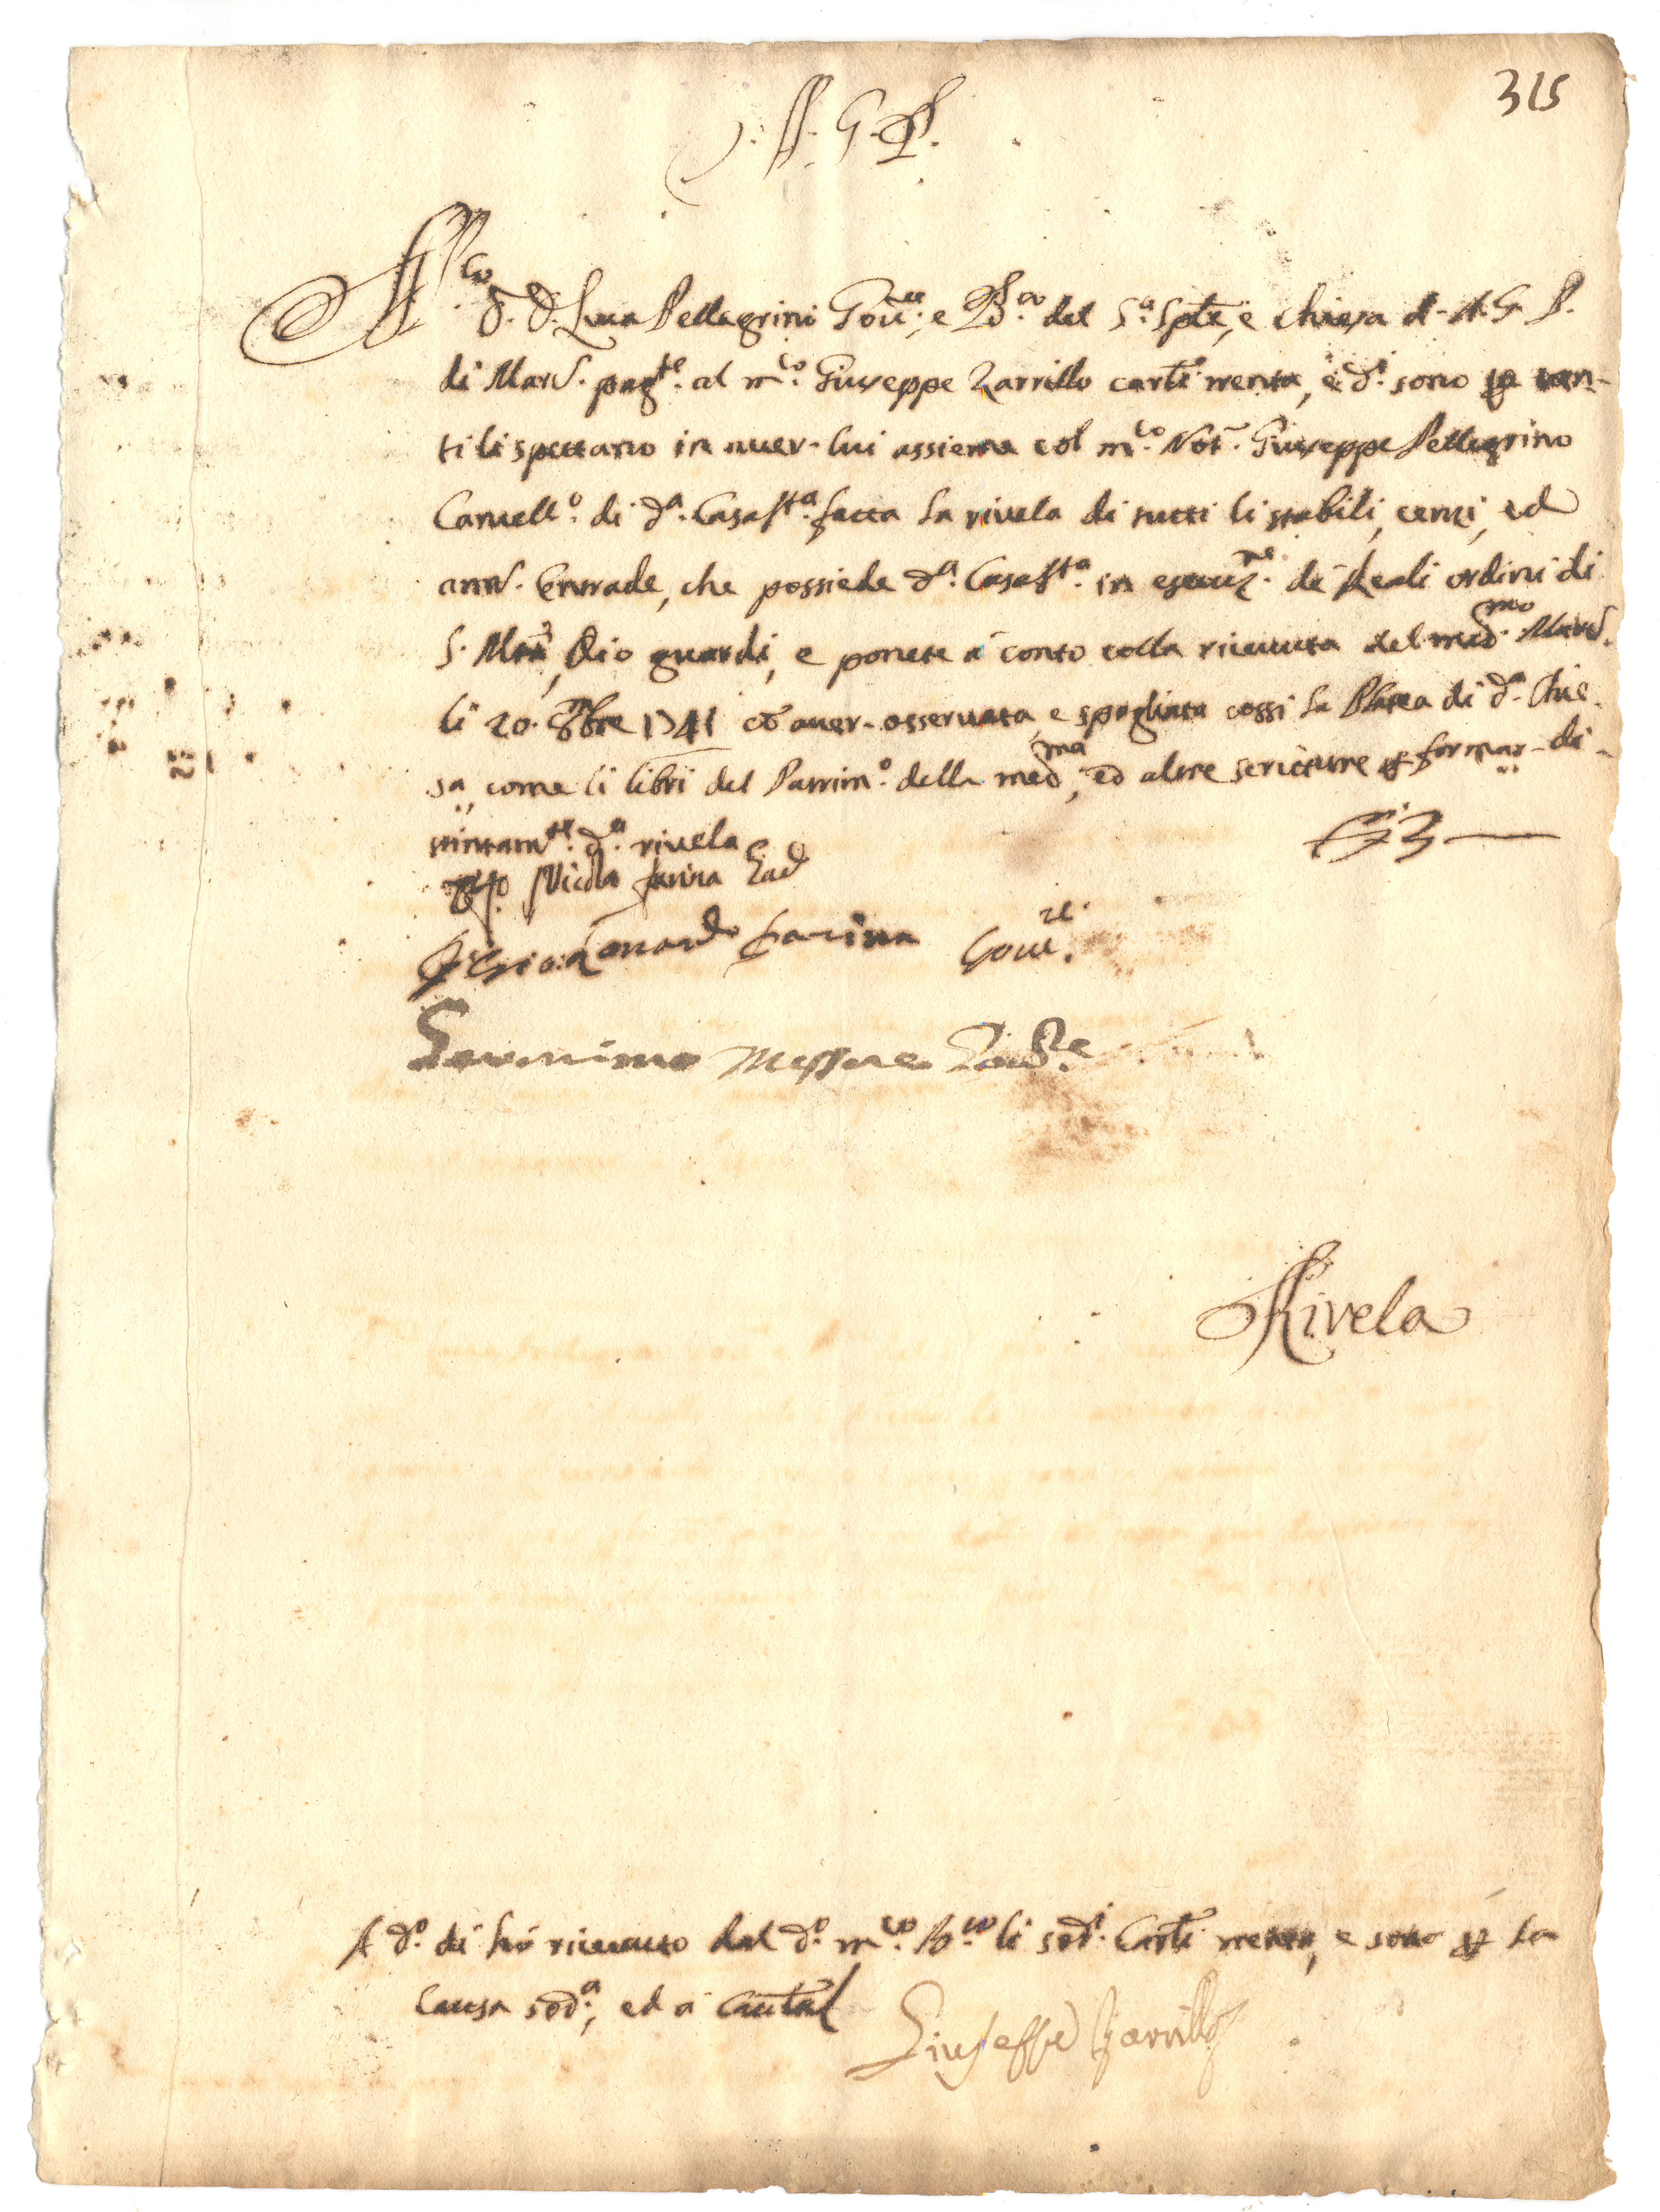 315
J. M. G. P.
M.co S. D. Luca Pellegrini Gou.re, e B.co del S.o Spte, e Chiesa d. A. G. P.
di Mard. pag.te al m.co Giuseppe Zarrillo carli trenta, e d.i sono p ven-
ti li spettano in auer- lui assieme col m.co Not.r Giuseppe Pellegrino
Cancell.o di d.a Casa S.ta fatta la rivela di tutti li stabili, cenzi, ed
ann. Entrade, che possiede d.a Casa S.ta in esecuz.ne di Reali ordini di
S. Mtà, Dio guardi, e ponete à conto colla riceuuta del med.mo Mard.
li 20. 1741 auer- osseruata, e spogliata cossi la Platea di d.a Chie-
sa, come li libri del Patrim.o della med.ma, ed altre scritture p formar- di-
stintam.te d.a rivela
Nicola farina
Leonardo farina Gou.re
Geronimo Messore
Rivela
A d.o di hò riceuuto dal d.o m.co B.co li sod.i Carli trenta, e sono p la
causa sod.a, ed a cautel
Giuseppe Zarrillo